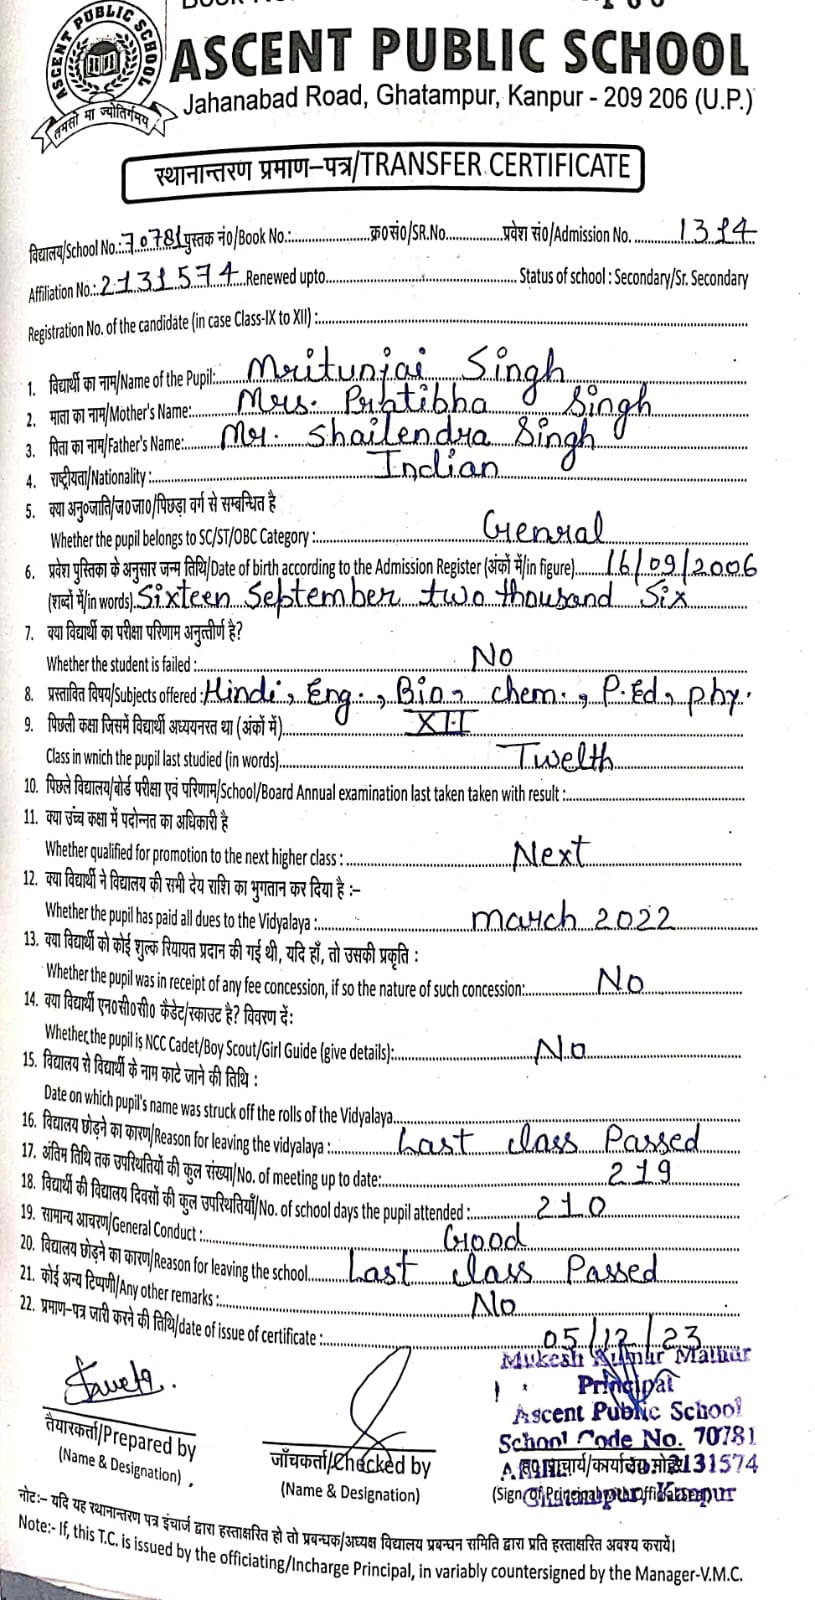 ASCENT PUBLIC SCHOOL
तमसो मा ज्योतिर्गमय
ASCENT PUBLIC SCHOOL
Jahanabad Road, Ghatampur, Kanpur - 209 206 (U.P.)
स्थानान्तरण प्रमाण-पत्र/TRANSFER CERTIFICATE
विद्यालय/School No.: 70781 पुस्तक नं०/Book No.:.................... क्र०सं०/SR.No............... प्रवेश सं०/Admission No. ........... 1314
Affiliation No.: 2131574 Renewed upto.................... Status of school : Secondary/Sr. Secondary
Registration No. of the candidate (in case Class-IX to XII) :....................
1. विद्यार्थी का नाम/Name of the Pupil:...... Mritunjai Singh
2. माता का नाम/Mother's Name:........ Mrs. Pratibha Singh
3. पिता का नाम/Father's Name:...... Mr. Shailendra Singh
4. राष्ट्रीयता/Nationality :.................... Indian
5. क्या अनु०जाति/ज०जा०/पिछड़ा वर्ग से सम्बन्धित है
Whether the pupil belongs to SC/ST/OBC Category :.................... Genral
6. प्रवेश पुस्तिका के अनुसार जन्म तिथि/Date of birth according to the Admission Register (अंकों में/in figure)...... 16/09/2006
(शब्दों में/in words). Sixteen September two thousand Six
7. क्या विद्यार्थी का परीक्षा परिणाम अनुत्तीर्ण है?
Whether the student is failed :.................... No
8. प्रस्तावित विषय/Subjects offered : Hindi, Eng., Bio, chem., P.Ed, phy.
9. पिछली कक्षा जिसमें विद्यार्थी अध्ययनरत था (अंकों में).................... XII
Class in wnich the pupil last studied (in words).................... Twelth
10. पिछले विद्यालय/बोर्ड परीक्षा एवं परिणाम/School/Board Annual examination last taken taken with result :....................
11. क्या उच्च कक्षा में पदोन्नत का अधिकारी है
Whether qualified for promotion to the next higher class :.................... Next
12. क्या विद्यार्थी ने विद्यालय की सभी देय राशि का भुगतान कर दिया है :-
Whether the pupil has paid all dues to the Vidyalaya :.................... march 2022
13. क्या विद्यार्थी को कोई शुल्क रियायत प्रदान की गई थी, यदि हाँ, तो उसकी प्रकृति :
Whether the pupil was in receipt of any fee concession, if so the nature of such concession:........ No
14. क्या विद्यार्थी एन०सी०सी० कैडेट/स्काउट है? विवरण दें:
Whether the pupil is NCC Cadet/Boy Scout/Girl Guide (give details):.................... No
15. विद्यालय से विद्यार्थी के नाम काटे जाने की तिथि :
Date on which pupil's name was struck off the rolls of the Vidyalaya....................
16. विद्यालय छोड़ने का कारण/Reason for leaving the vidyalaya :........ Last class Passed
17. अंतिम तिथि तक उपस्थितियों की कुल संख्या/No. of meeting up to date:.................... 219
18. विद्यार्थी की विद्यालय दिवसों की कुल उपस्थितियाँ/No. of school days the pupil attended :........ 210
19. सामान्य आचरण/General Conduct :.................... Good
20. विद्यालय छोड़ने का कारण/Reason for leaving the school........ Last class Passed
21. कोई अन्य टिप्पणी/Any other remarks :.................... No
22. प्रमाण-पत्र जारी करने की तिथि/date of issue of certificate :.................... 05/12/23
Mukesh Kumar Mathur
Principal
Ascent Public School
School Code No. 70781
तैयारकर्ता/Prepared by
(Name & Designation)
जाँचकर्ता/Checked by
(Name & Designation)
2131574
Ghatampur, Kanpur
नोटः- यदि यह स्थानान्तरण पत्र इंचार्ज द्वारा हस्ताक्षरित हो तो प्रबन्धक/अध्यक्ष विद्यालय प्रबन्धन समिति द्वारा प्रति हस्ताक्षरित अवश्य करायें।
Note:- If, this T.C. is issued by the officiating/Incharge Principal, in variably countersigned by the Manager-V.M.C.